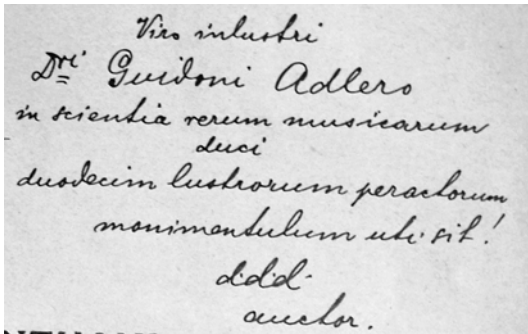 Viro inlustri
Dri Guidoni Adlero
in scientia rerum musicarum
duci
duodecim lustrorum peractorum
monimentulum uti sit!
d.d.d.
auctor.